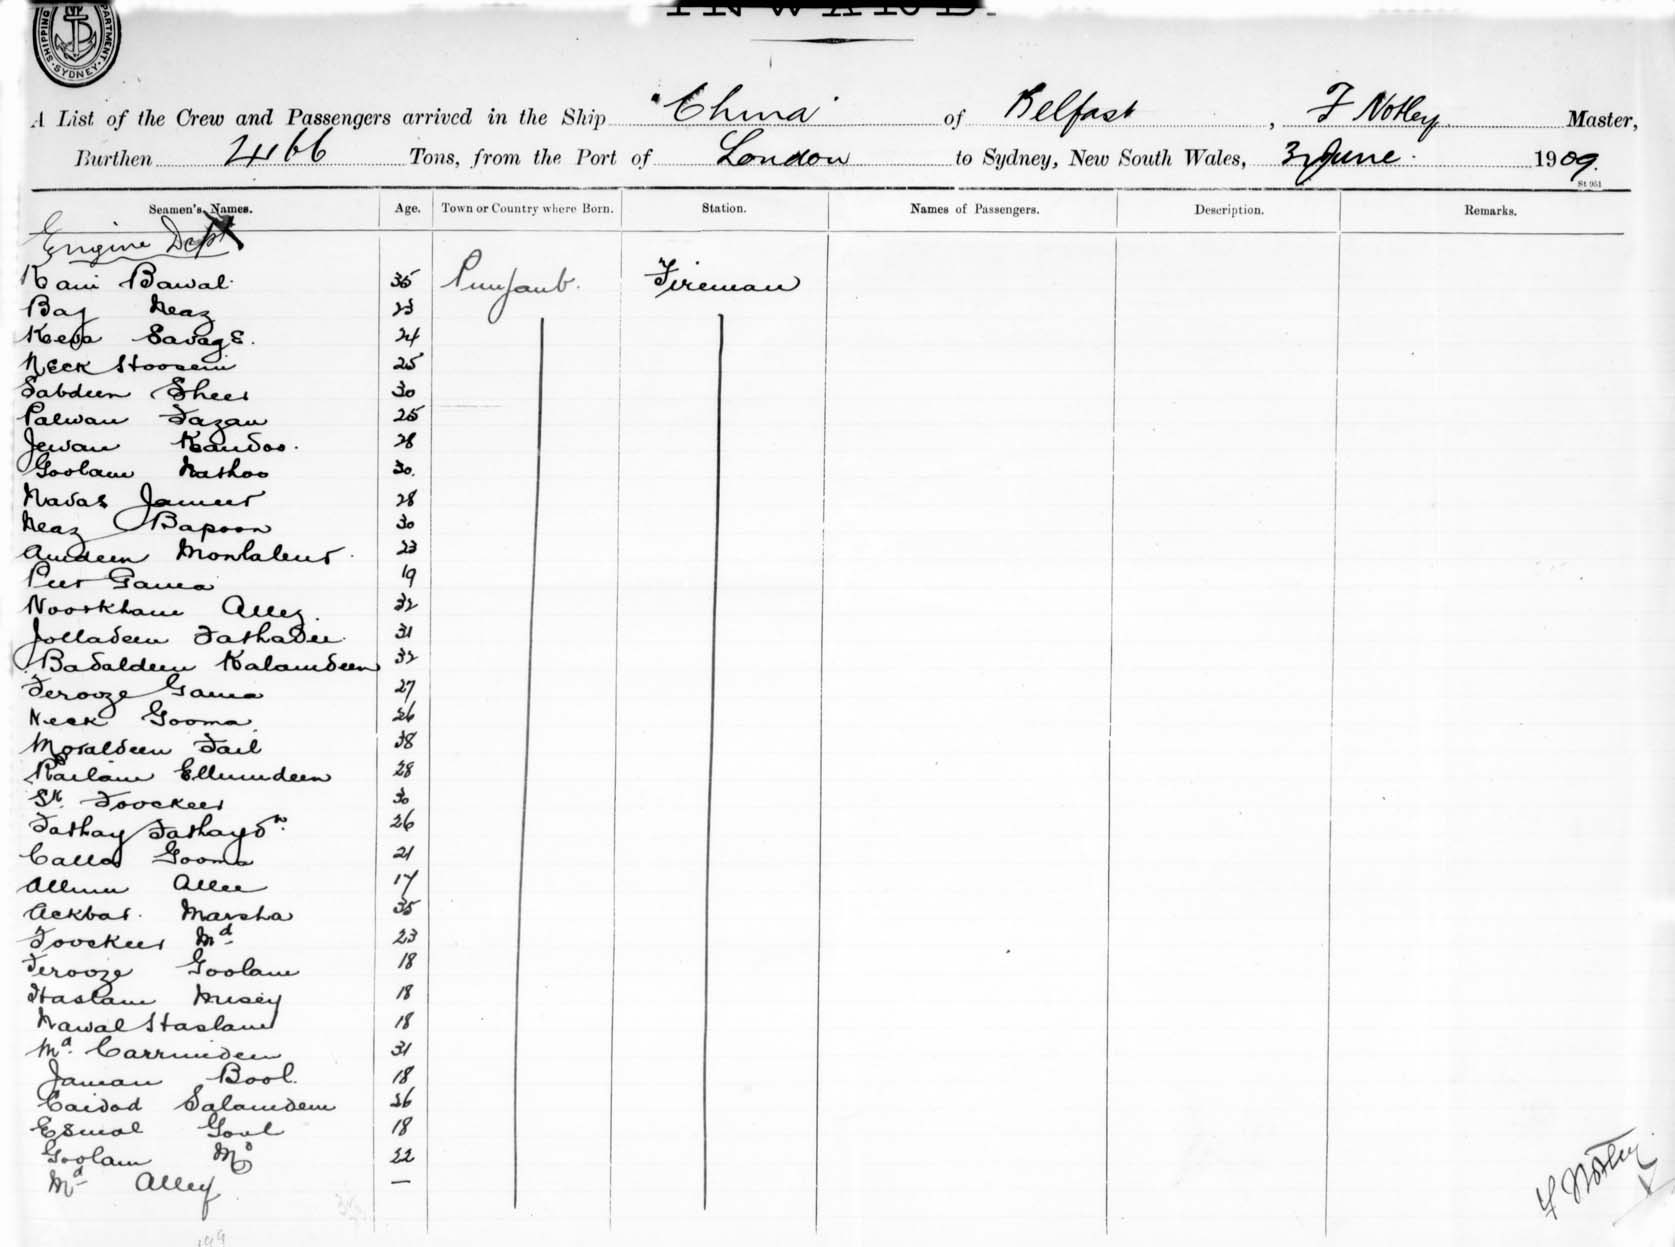 INWARD.
SHIPPING DEPARTMENT SYDNEY
A List of the Crew and Passengers arrived in the Ship "China" of Belfast, F Notley Master,
Burthen 4166 Tons, from the Port of London to Sydney, New South Wales, 3 June 1909.
St 951
Seamen's Names. Age. Town or Country where Born. Station. Names of Passengers. Description. Remarks.
Engine Dept
Bawal 35 Punjaub. Fireman
Baj Neaz 23
Savage. 24
Neck Hoosein 25
Sabdeen Sheer 30
Palwan Fazan 25
Jewan Kandoo. 28
Goolam Nathoo 30.
Navas Jameer 28
Neaz Bapoon 30
Amdeen 23
Peer Gama 19
Noorkhan Alley. 32
Jolladeen 31
Badaldeen Kalamdeen 32
Ferooze Gama 27
Neck Gooma 26
Moraldeen Fail 38
Ellumdeen 28
Sk. Foockeer 30
Fathay 26
Calla Gooma 21
Allum Allee 17
Ackbar. Marsha 35
Foockeer Md 23
Ferooze Goolam 18
Haslam Musey 18
Nawal Haslam 18
Md. Carrimdeen 31
Jaman Bool. 18
Caidad Salamdeen 26
Esmal Goul 18
Goolam Md 22
Md Alley —
F Notley